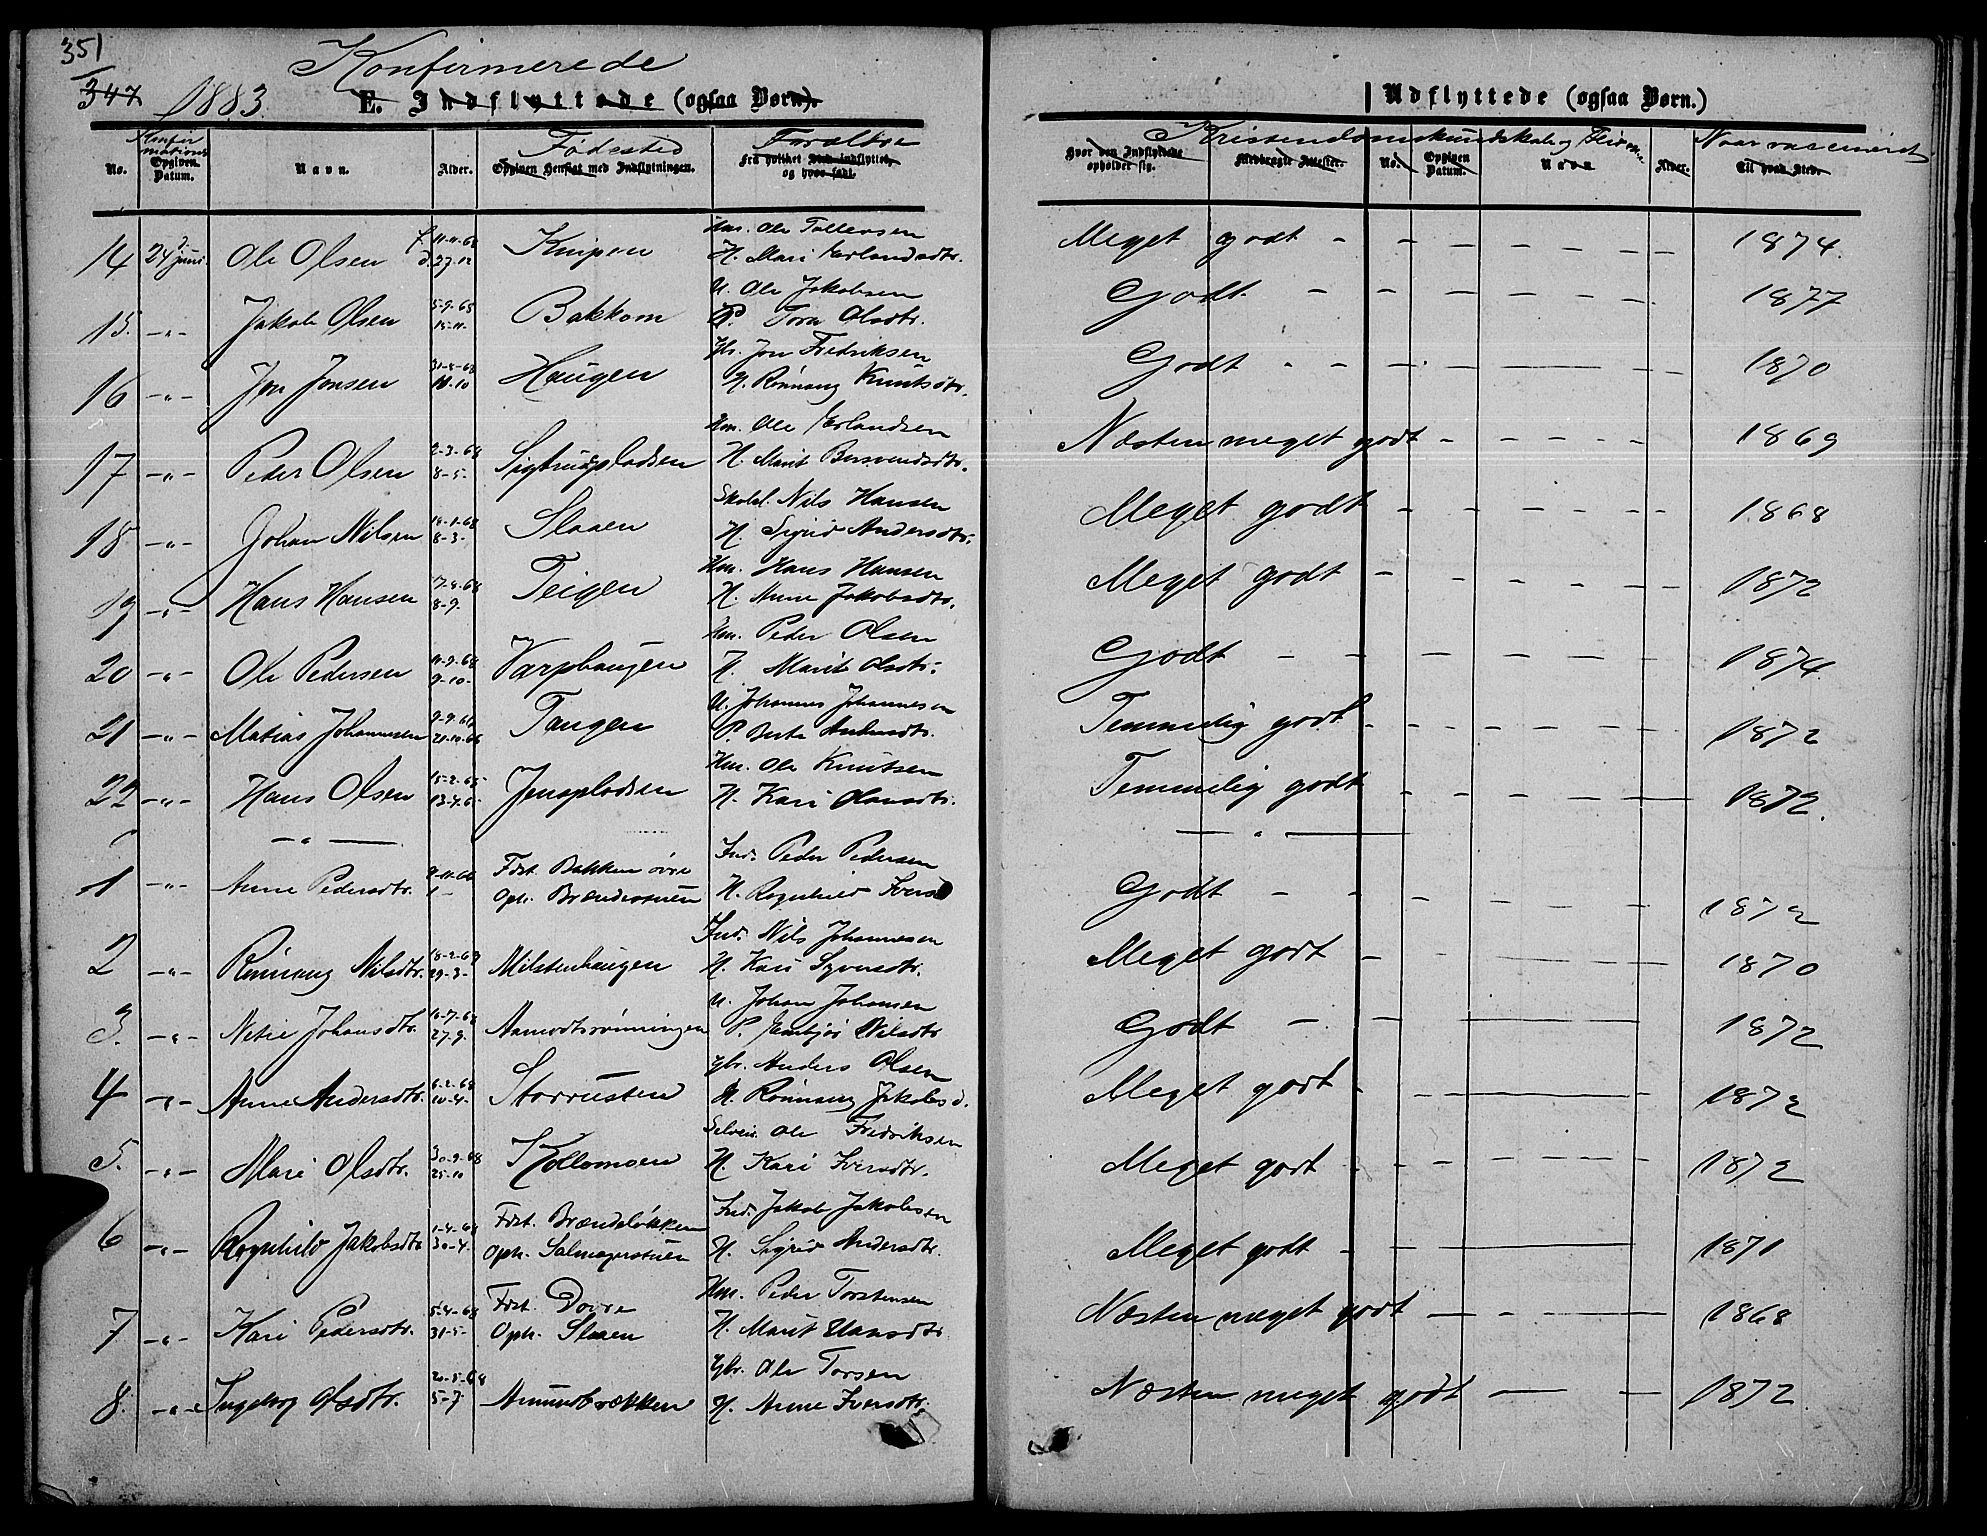 351
347
1883.
Konfirmerede
E. Indflyttede (ogsaa Børn).
Udflyttede (ogsaa Børn.)
No.
Konfirmations
Opgiven Datum.
Navn.
Alder.
Fødested
Opgiven Hensigt med Indflytningen.
Forældre
Fra hvilket Sted indflyttet, og hvor sadl.
Hvor den Indflyttede opholder sig.
Kristendomskundskab og Flid
Medbragte Attester.
No.
Opgiven Datum.
Navn
Alder.
Naar vaccineret
Til hvad Sted.
Hm. Ole Tollevsen
14 24 juni Ole Olsen f. 11-11-68 d. 27-12 Knipen H. Mari Erlandsdtr. Meget godt - - - - - - 1874.
U. Ole Jakobsen
15. -"- Jakob Olsen 5-9-68 15-11- Bakkom P. Tora Olsdtr. Godt - - - - - - 1877
Gbr. Jon Fredriksen
16 -"- Jon Jonsen 31-8-68 11-10 Haugen H. Rønnaug Knutsdtr. Godt - - - - - - 1870
Hm. Ole Erlandsen
17 -"- Peder Olsen 2-3-68 8-5- Sigstrupladsen H. Marit Bersvendsdtr. Næsten meget godt - - - - - 1869
Skolel. Nils Hansen
18 -"- Johan Nilsen 18-1-68 8-3- Slaaen H. Sigrid Andersdtr. Meget godt - - - - - 1868
Hm. Hans Hansen
19 -"- Hans Hansen 17-8-68 8-9. Teigen H. Anne Jakobsdtr. Meget godt - - - - - 1872
Hm. Peder Olsen
20 -"- Ole Pedersen 11-9-68 9-10- Varphaugen H. Marit Olsdtr. Godt - - - - - - 1874.
U. Johannes Johannesen
21 -"- Matias Johannesen 9-9-66 21-10-66 Tangen P. Berte Andersdtr. Temmelig godt - - - - - 1872
Hm. Ole Knutsen
22 -"- Hans Olsen 15-2-65 13-4-6- Jenspladsen H. Kari Olsdtr. Temmelig godt - - - - 1872.
-"-
Ind. Peder Pedersen
1 -"- Anne Pedersdtr. Fdst. Bakken øvre Oph. Brændevstuen H. Ragnhild Iversd Godt - - - - - - 1872
Ind. Nils Johannesen
2 -"- Rønnaug Nilsdtr. 18-2-67 29-3- Milstenhaugen H. Kari Synsdtr. Meget godt - - - - - 1870
U. Johan Johansen
3. -"- Netie Johansdtr. 16-7-68 27-9. Aamodtsrønningen P. Embjør Nilsdtr Godt - - - 1872
Gbr. Anders Olsen
4 -"- Anne Andersdtr. 8-2-68 10-4- Storrusten H. Rønnaug Jakobsd. Meget godt - - - 1872
Selvei. Ole Fredriksen
5. -"- Mari Olsdtr. 30-9-68 25-10 Kollomoen H. Kari Iversdtr. Meget godt - - - 1872
Ind. Jakob Jakobsen
6 -"- Ragnhild Jakobsdtr. 1-4-68 30-4. Fdst. Brændeløkken Oph. Salmagerstuen H. Sigrid Andersdtr. Meget godt - - - 1871
Hm. Peder Torstensen
7 -"- Kari Pedersdtr. 5-4-68 31-5- Fdst. Dovre Oph. Slaaen H. Marit Hansdtr Næsten meget godt - - 1868
Gbr. Ole Torsen
8. -"- Ingeborg Olsdtr. 20-5-68 5-7 Amundbrækken H. Anne Iversdtr. Næsten meget godt - - 1872